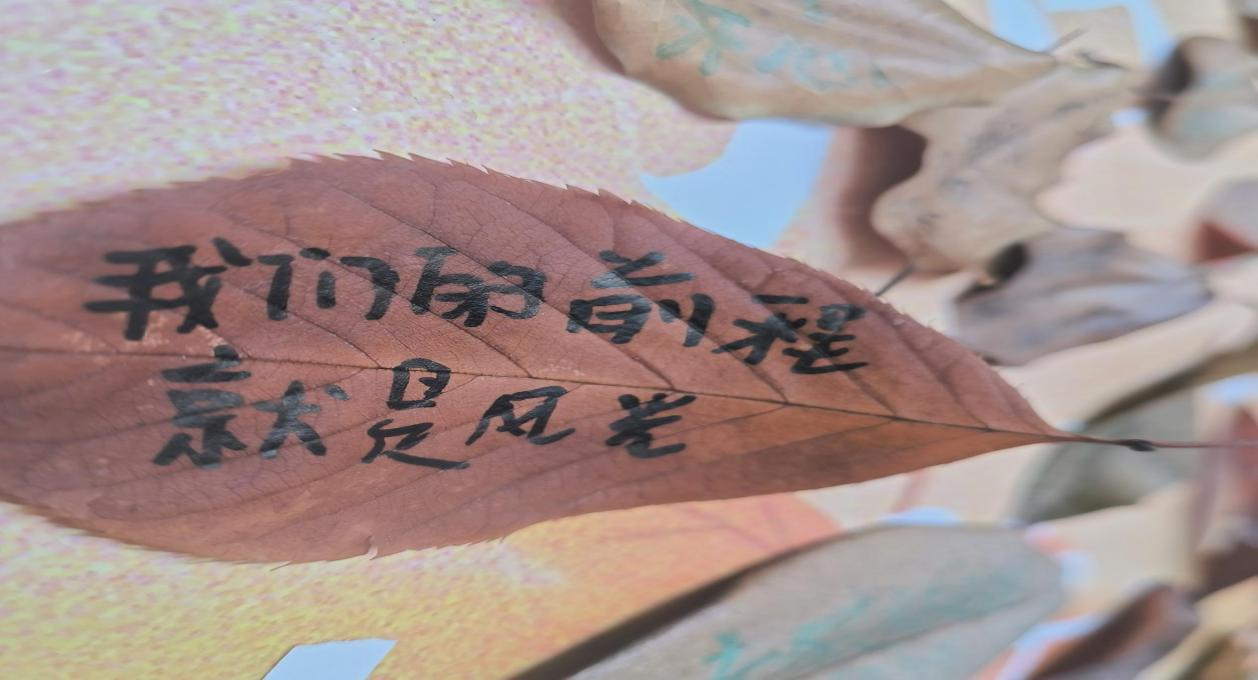 我们的前程
就是风光